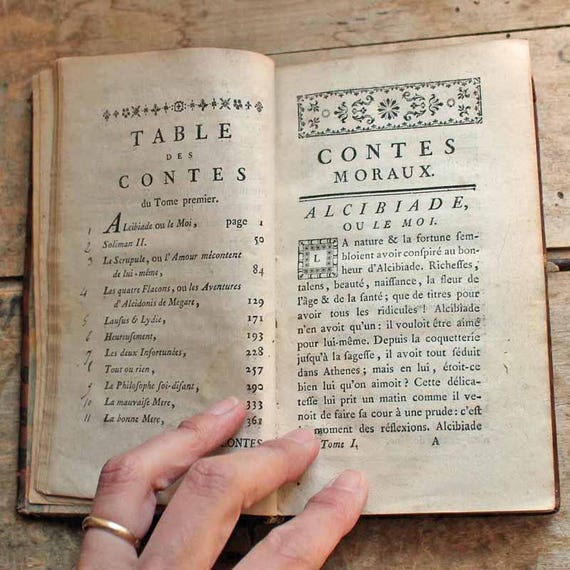 TABLE
DES
CONTES
du Tome premier.
1 Alcibiade ou le Moi, page 1
2 Soliman II. 50
3 Le Scrupule, ou l'Amour mécontent
de lui-même, 84
4 Les quatre Flacons, ou les Aventures
d'Alcidonis de Megare, 129
5 Lausus & Lydie, 171
6 Heureusement, 193
7 Les deux Infortunées, 228
8 Tout ou rien, 257
9 Le Philosophe soi-disant, 290
10 La mauvaise Mere, 333
11 La bonne Mere, 361
CONTES
CONTES
MORAUX.
ALCIBIADE,
OU LE MOI.
LA nature & la fortune sem-
bloient avoir conspiré au bon-
heur d'Alcibiade. Richesses,
talens, beauté, naissance, la fleur de
l'âge & de la santé; que de titres pour
avoir tous les ridicules! Alcibiade
n'en avoit qu'un: il vouloit être aimé
pour lui-même. Depuis la coquetterie
jusqu'à la sagesse, il avoit tout séduit
dans Athenes; mais en lui, étoit-ce
bien lui qu'on aimoit? Cette délica-
tesse lui prit un matin comme il ve-
noit de faire sa cour à une prude: c'est
le moment des réflexions. Alcibiade
Tome I, A